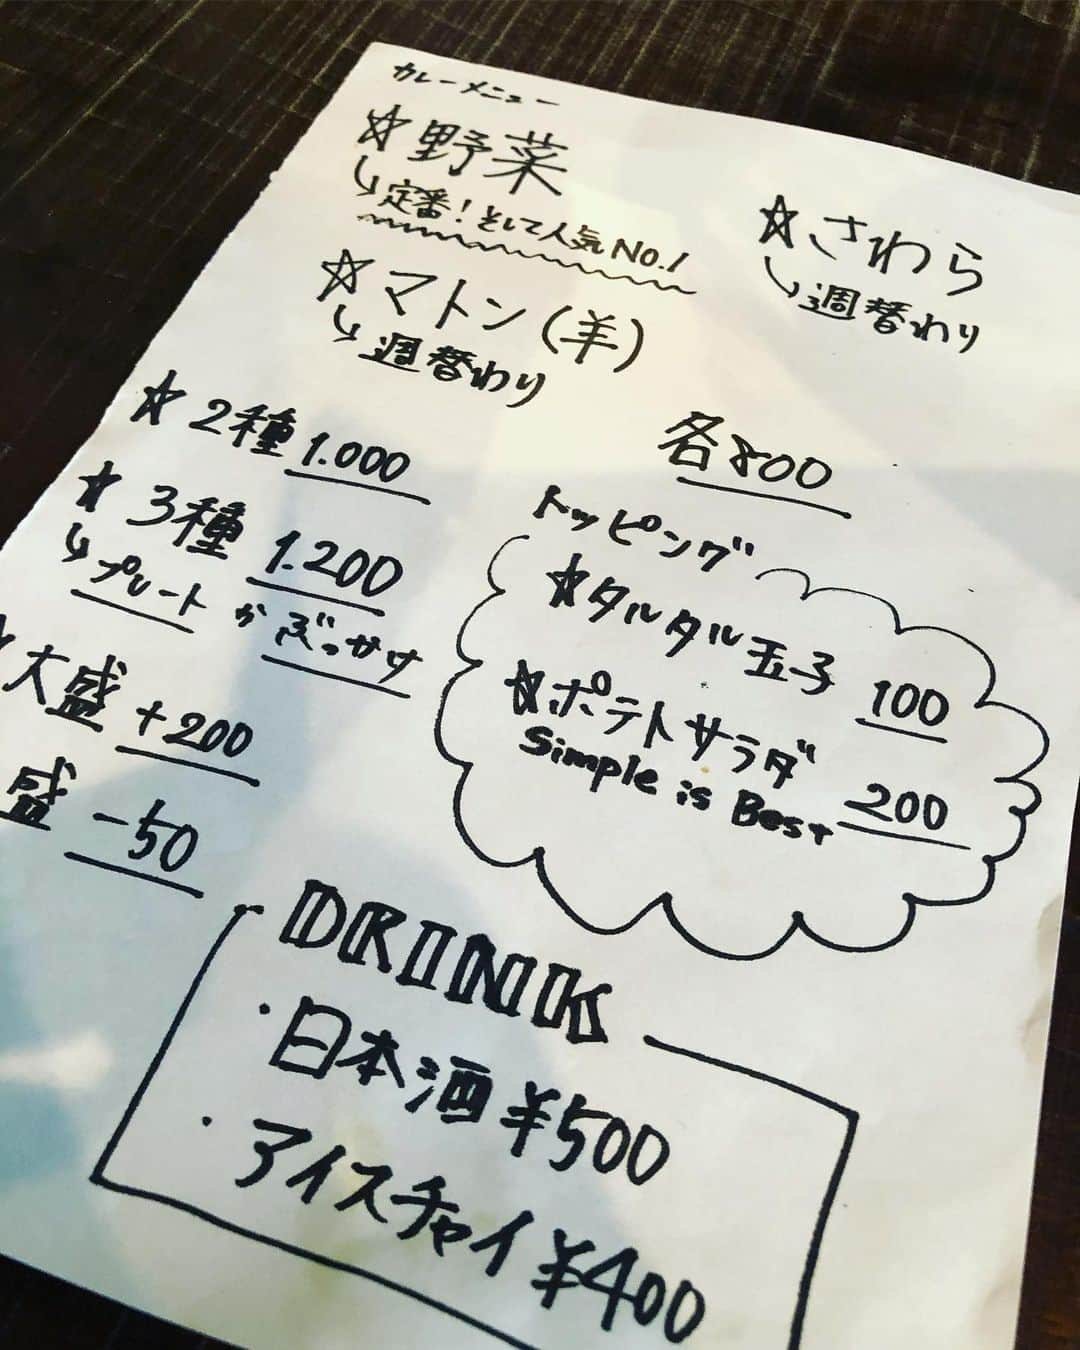 カレーメニュー
☆野菜
↳定番！そして人気No.1
☆さわら
↳週替わり
☆マトン(羊)
↳週替わり
各800
☆2種 1.000
☆3種 1.200
↳プレート か ぶっかけ
☆大盛 +200
盛 -50
トッピング
☆タルタル玉子 100
☆ポテトサラダ 200
Simple is Best
DRINK
・日本酒 ¥500
・アイスチャイ ¥400